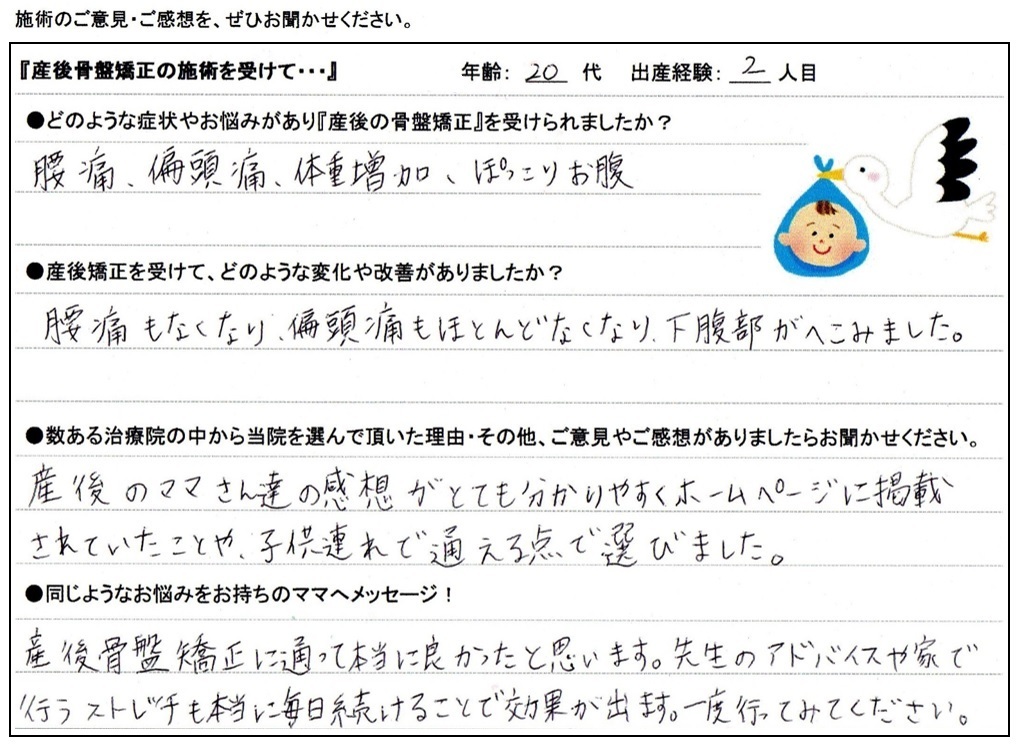 施術のご意見・ご感想を、ぜひお聞かせください。
『産後骨盤矯正の施術を受けて・・・』 年齢： 20 代 出産経験： 2 人目
●どのような症状やお悩みがあり『産後の骨盤矯正』を受けられましたか？
腰痛、偏頭痛、体重増加、ぽっこりお腹
●産後矯正を受けて、どのような変化や改善がありましたか？
腰痛もなくなり、偏頭痛もほとんどなくなり、下腹部がへこみました。
●数ある治療院の中から当院を選んで頂いた理由・その他、ご意見やご感想がありましたらお聞かせください。
産後のママさん達の感想がとても分かりやすくホームページに掲載
されていたことや、子供連れで通える点で選びました。
●同じようなお悩みをお持ちのママへメッセージ！
産後骨盤矯正に通って本当に良かったと思います。先生のアドバイスや家で
行うストレッチも本当に毎日続けることで効果が出ます。一度行ってみてください。